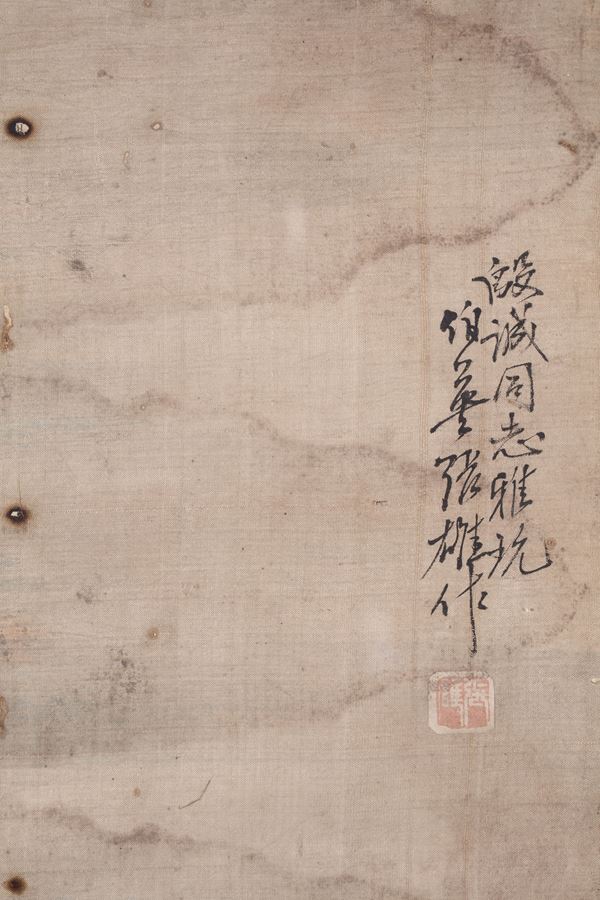 殷誠同志雅玩
伯英張雄作